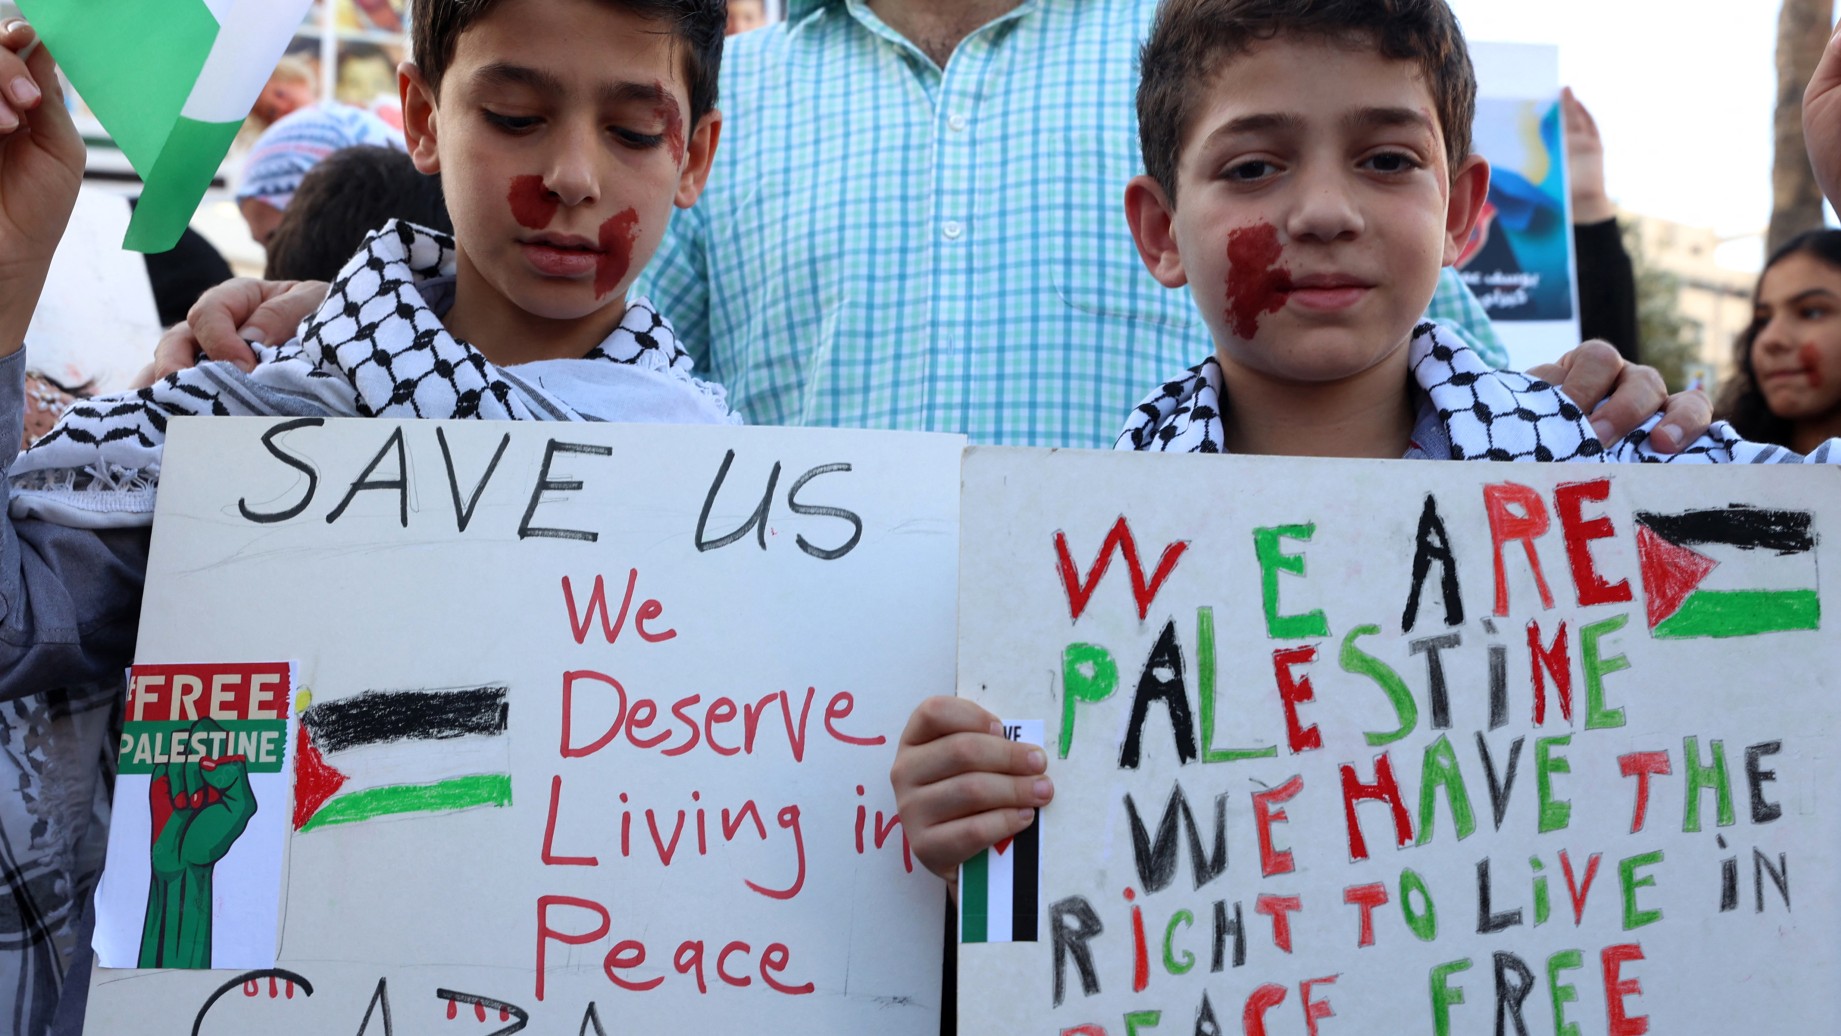 SAVE US
We
Deserve
Living in
Peace
GAZA
FREE
PALESTINE
WE ARE
PALESTINE
WE HAVE THE
RIGHT TO LIVE IN
PEACE FREE